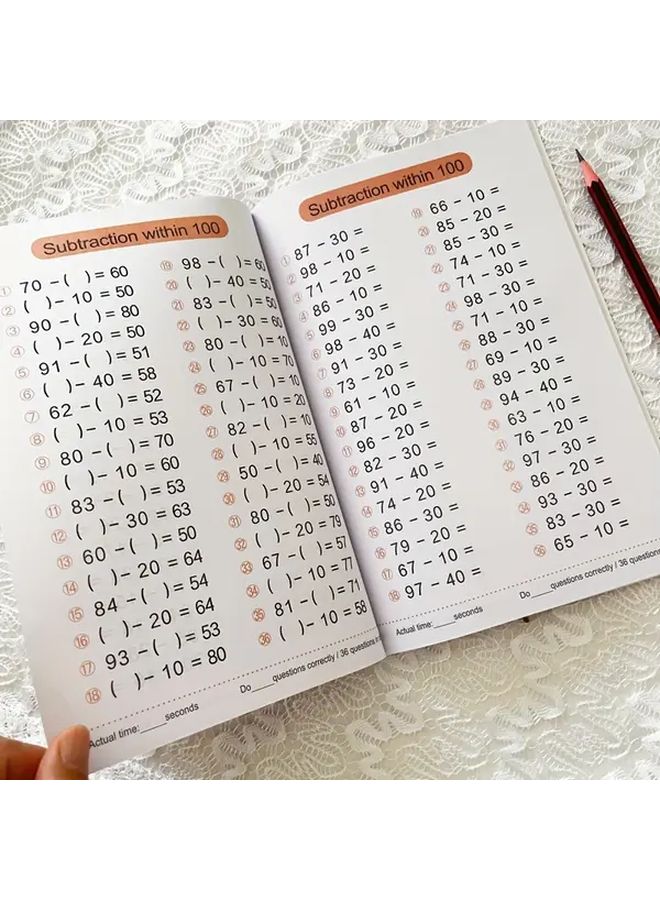 Subtraction within 100
① 70 − ( ) = 60
② ( ) − 10 = 50
③ 90 − ( ) = 80
④ ( ) − 20 = 50
⑤ 91 − ( ) = 51
⑥ ( ) − 40 = 58
⑦ 62 − ( ) = 52
⑧ ( ) − 10 = 53
⑨ 80 − ( ) = 70
⑩ ( ) − 10 = 60
⑪ 83 − ( ) = 53
⑫ ( ) − 30 = 63
⑬ 60 − ( ) = 50
⑭ ( ) − 20 = 64
⑮ 84 − ( ) = 54
⑯ ( ) − 20 = 64
⑰ 93 − ( ) = 53
⑱ ( ) − 10 = 80
⑲ 98 − ( ) = 60
⑳ ( ) − 40 = 50
㉑ 83 − ( ) = 50
㉒ ( ) − 30 = 60
㉓ 80 − ( ) = 10
㉔ ( ) − 10 = 70
㉕ 67 − ( ) = 10
㉖ ( ) − 10 = 20
㉗ 82 − ( ) = 10
㉘ ( ) − 10 = 55
㉙ 50 − ( ) = 40
㉚ ( ) − 20 = 54
㉛ 80 − ( ) = 50
㉜ ( ) − 20 = 79
㉝ 67 − ( ) = 57
㉞ ( ) − 10 = 77
㉟ 81 − ( ) = 71
㊱ ( ) − 10 = 58
Actual time:____seconds Do____questions correctly / 36 questions
Subtraction within 100
① 87 − 30 =
② 98 − 10 =
③ 71 − 20 =
④ 86 − 10 =
⑤ 99 − 30 =
⑥ 98 − 40 =
⑦ 91 − 30 =
⑧ 73 − 20 =
⑨ 61 − 10 =
⑩ 87 − 20 =
⑪ 96 − 20 =
⑫ 82 − 30 =
⑬ 91 − 40 =
⑭ 74 − 20 =
⑮ 86 − 30 =
⑯ 79 − 20 =
⑰ 67 − 10 =
⑱ 97 − 40 =
⑲ 66 − 10 =
⑳ 85 − 20 =
㉑ 85 − 30 =
㉒ 74 − 10 =
㉓ 71 − 30 =
㉔ 98 − 30 =
㉕ 71 − 10 =
㉖ 88 − 30 =
㉗ 69 − 10 =
㉘ 89 − 30 =
㉙ 94 − 40 =
㉚ 63 − 10 =
㉛ 76 − 20 =
㉜ 97 − 30 =
㉝ 86 − 20 =
㉞ 93 − 30 =
㉟ 83 − 30 =
㊱ 65 − 10 =
Actual time:____seconds Do____questions correctly / 36 questions